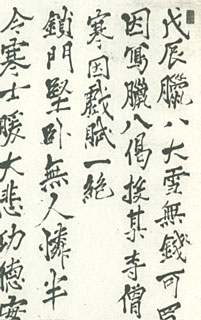 戊辰臘八大雪無錢可
因寫臘八偈某寺僧
寒因戲賦一絕
鎖門堅卧無人憐半
令寒士暖大悲功德